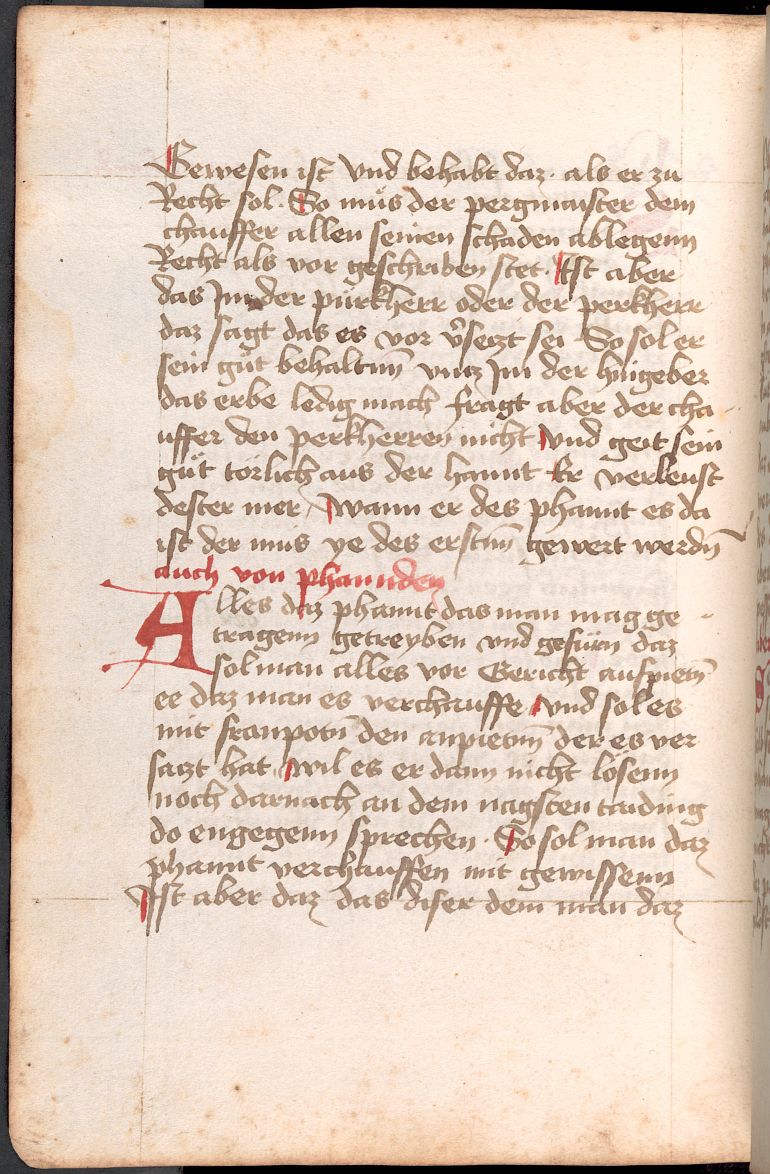 Gewesen ist Vnd behabt daz · als er zu
Recht sol · So mus der pergmaister dem
chauffer allen seinen schaden ablegenn
Recht als vor geschriben stet · Ist aber
das Im der pürkherr oder der perkherr
daz sagt das es vor v̉seczt sei So sol er
sein güt behaltnn̄ vncz Im der hingeber
das erbe ledig mach fragt aber der cha-
uffer den perkherren nicht Vnd geit sein
güt törlich aus der hannt Er verleust
dester mer / wann er des phannt es da
ist der mus ye des erstnn̄ gewert werdn̄
auch von phannden
Alles daz phannt das man mag ge-
tragenn getreyben vnd gefürn daz
sol man alles vor Gericht aufpietn̄
ee daz man es verchauffe Vnd sol es
mit fronpotn̄ den anpietnn̄ der es ver
saczt hat wil es er dann nicht lösenn
noch darnach an dem nagsten taiding
do engegenn sprechen · So sol man daz
phannt verchauffen mit gewissenn
Ist aber daz das diser dem man daz